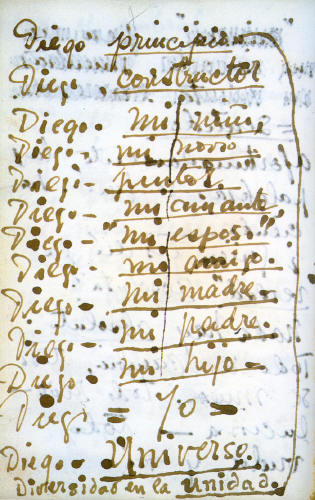 Diego principio
Diego constructor
Diego. mi niño
Diego- mi novio
Diego- pintor.
Diego- mi amante
Diego- "mi esposo"
Diego- mi amigo.
Diego- mi madre-
Diego- mi padre.
Diego- mi hijo-
Diego = Yo-
Diego- Universo.
Diversidad en la unidad.